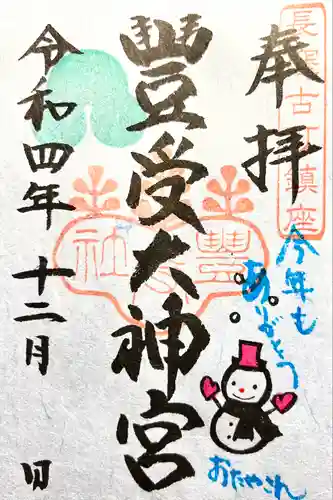 奉拝
長堤古町鎮座
豊受大神宮
豊受社
令和四年 十二月 日
今年も
ありがとう
おたやこれ